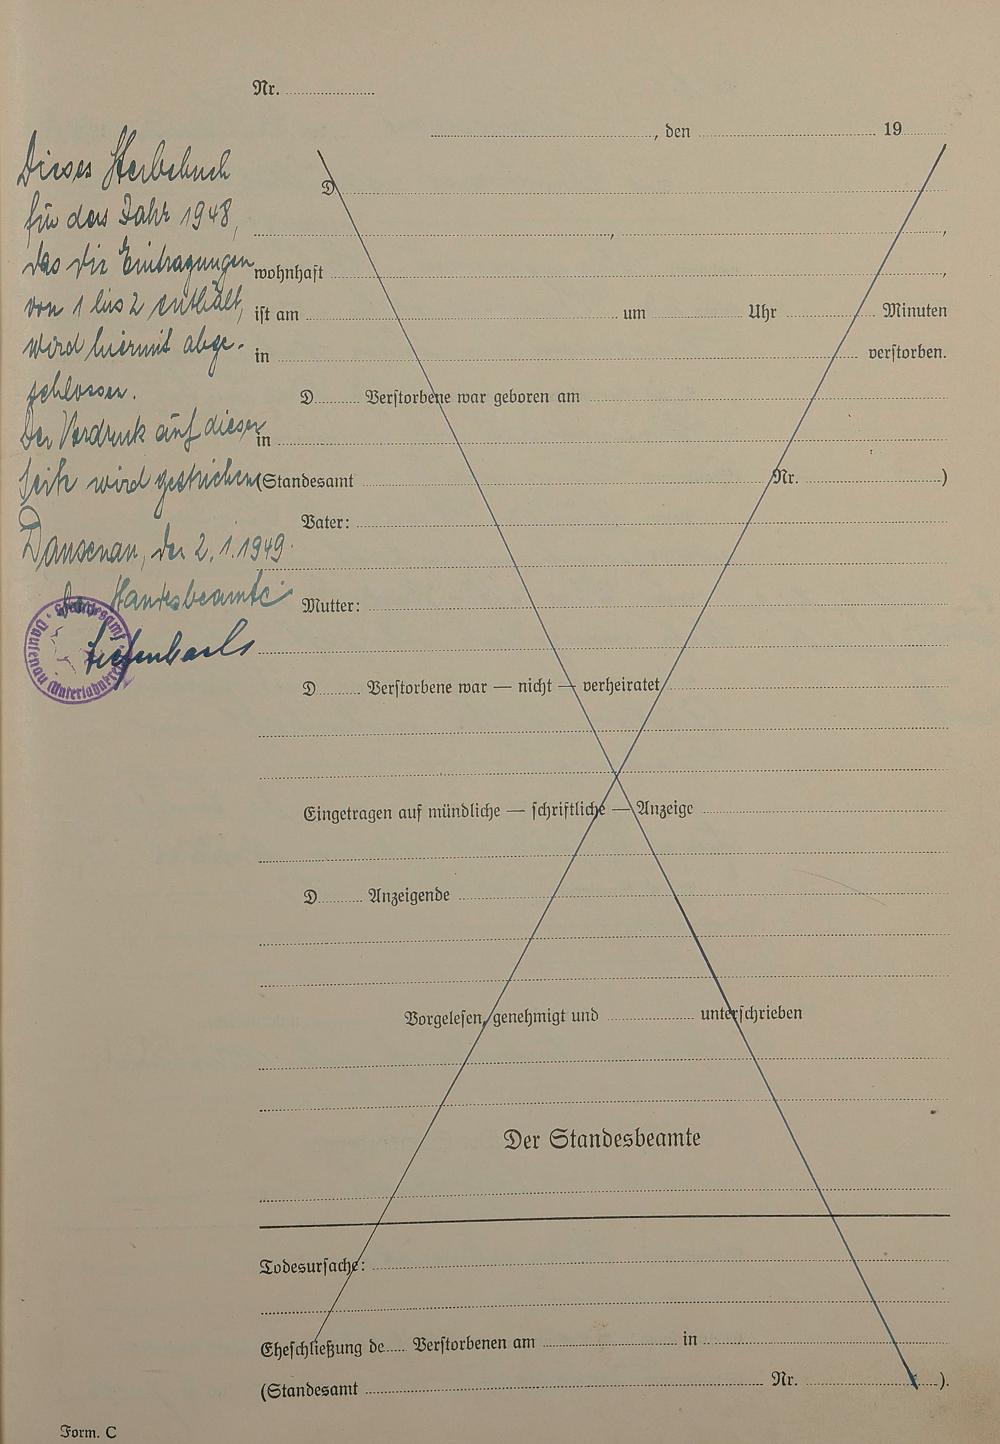 Nr.
, den 19
Dieses Sterbebuch
für das Jahr 1948,
das die Eintragungen
von 1 bis 2 enthält,
wird hiermit abge-
schlossen.
Der Vordruck auf dieser
Seite wird gestrichen
Dausenau, den 2.1.1949.
Der Standesbeamte
Standesamt
Dausenau (Unterlahnkreis)
D
,
,
wohnhaft ,
ist am um Uhr Minuten
in verstorben.
D Verstorbene war geboren am
in
(Standesamt Nr. )
Vater:
Mutter:
D Verstorbene war — nicht — verheiratet
Eingetragen auf mündliche — schriftliche — Anzeige
D Anzeigende
Vorgelesen, genehmigt und unterschrieben
Der Standesbeamte
Todesursache:
Eheschließung de Verstorbenen am in
(Standesamt Nr. ).
Form. C